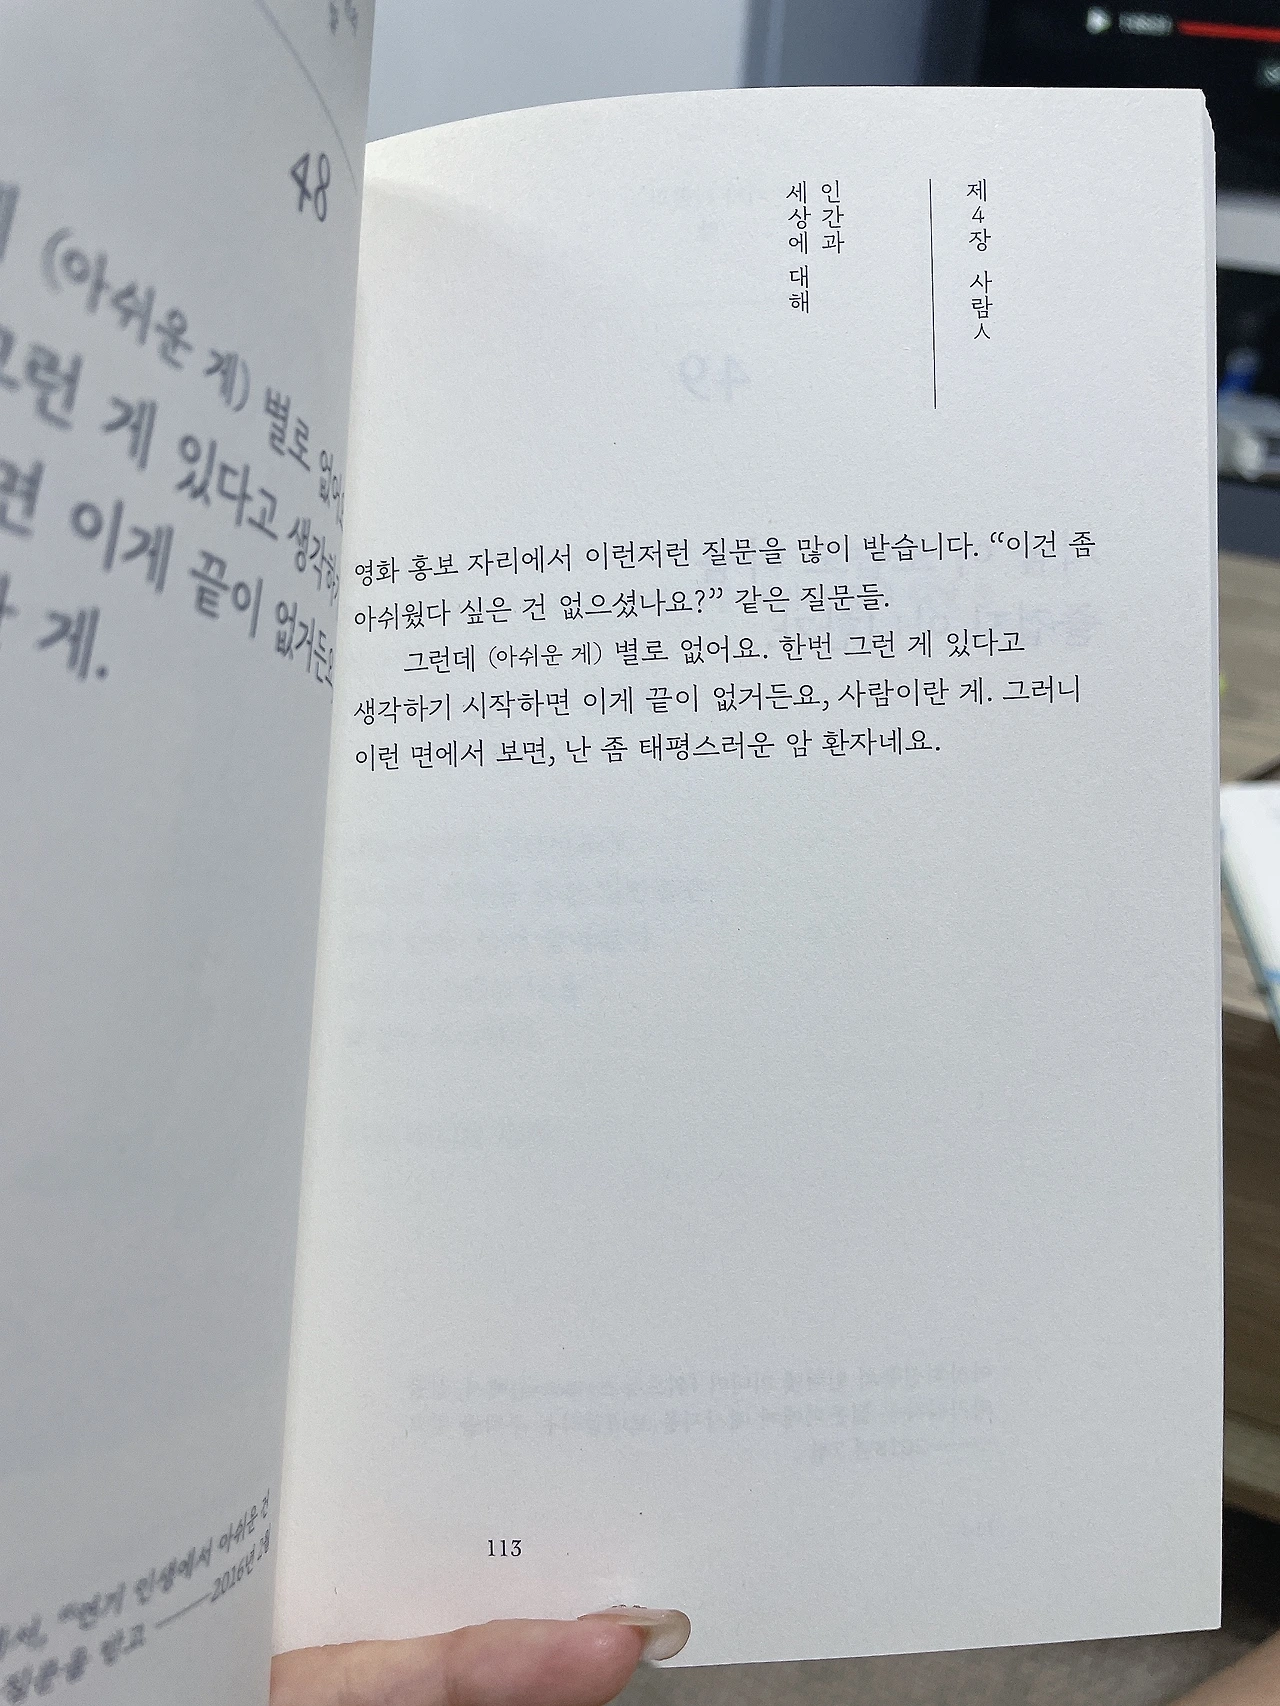 48
(아쉬운 게) 별로 없어요
그런 게 있다고 생각하기
이게 끝이 없거든요
게.
"연기 인생에서 아쉬운 건
질문을 받고 ——2016년 2월
제4장 사람人
인간과
세상에 대해
영화 홍보 자리에서 이런저런 질문을 많이 받습니다. “이건 좀
아쉬웠다 싶은 건 없으셨나요?” 같은 질문들.
그런데 (아쉬운 게) 별로 없어요. 한번 그런 게 있다고
생각하기 시작하면 이게 끝이 없거든요, 사람이란 게. 그러니
이런 면에서 보면, 난 좀 태평스러운 암 환자네요.
113